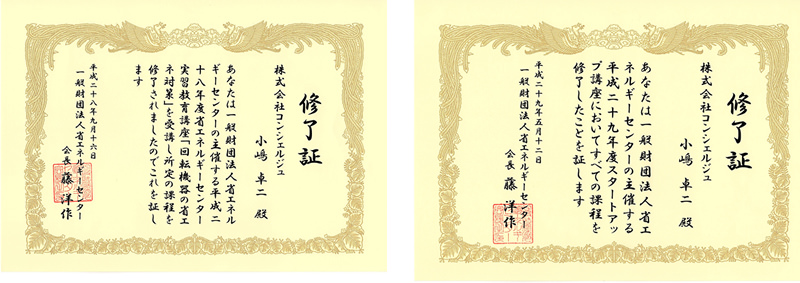 修了証
株式会社コンシェルジュ
小嶋 卓二 殿
あなたは一般財団法人省エネル
ギーセンターの主催する平成二
十八年度省エネルギーセンター
実習教育講座「回転機器の省エ
ネ対策」を受講し所定の課程を
修了されましたのでこれを証し
ます
平成二十八年九月十六日
一般財団法人省エネルギーセンター
会長 藤 洋作
修了証
株式会社コンシェルジュ
小嶋 卓二 殿
あなたは一般財団法人省エ
ネルギーセンターの主催する
平成二十九年度スタートアッ
プ講座においてすべての課程を
修了したことを証します
平成二十九年五月十二日
一般財団法人省エネルギーセンター
会長 藤 洋作